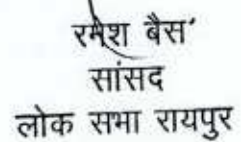 रमेश बैस'
सांसद
लोक सभा रायपुर